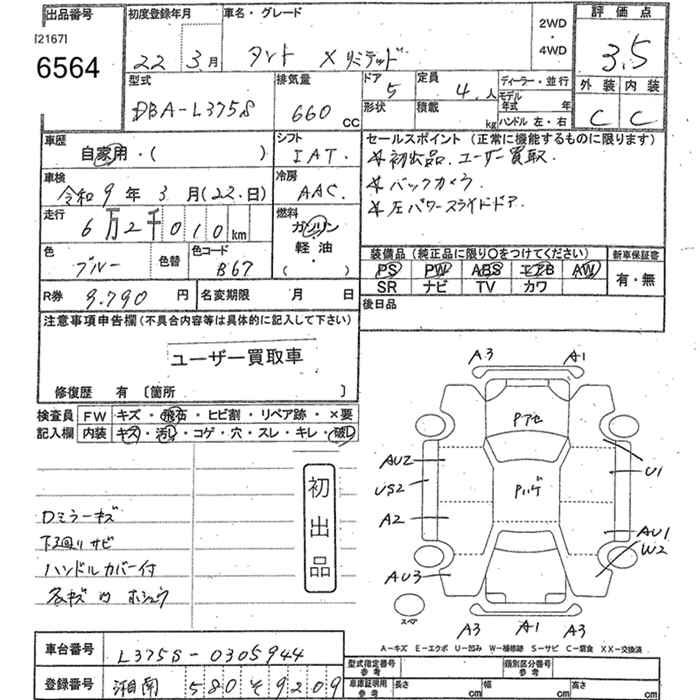 出品番号
[2167]
6564
初度登録年月
22年 3月
車名・グレード
タント X リミテッド
2WD
・
4WD
評価点
3.5
外装 内装
C C
型式
DBA-L375S
排気量
660 cc
ドア 5
形状
定員 4.人
積載 kg
ディーラー・並行
モデル年式 年
ハンドル 左・右
車歴
自家用・( )
シフト
IAT.
車検
令和9年 3月(22.日)
冷房
AAC.
走行
6万2千010km
燃料
ガソリン
軽油
( )
色
ブルー
色替
色コード
B67
R券 9.790円
名変期限 月 日
セールスポイント (正常に機能するものに限ります)
☆初出品、ユーザー買取.
☆バックカメラ.
☆左パワースライドドア.
装備品 (純正品に限り○をつけてください)
PS PW ABS エアB AW
SR ナビ TV カワ
新車保証書
有・無
後日品
注意事項申告欄(不具合内容等は具体的に記入して下さい)
ユーザー買取車
修復歴 有 〔箇所 〕
検査員 FW キズ・飛石・ヒビ割・リペア跡・×要
記入欄 内装 キズ・汚れ・コゲ・穴・スレ・キレ・破れ
初出品
Dミラーキズ
下廻りサビ
ハンドルカバー付
各キズ凹ホシュウ
A3 A1
Pアセ
AU2 U1
US2 Pハゲ
A2 AU1
W2
AU3
スペア
A3 A1 A3
A-キズ E-エクボ U-凹み W-補修跡 S-サビ C-腐食 XX-交換済
車台番号 L375S-0305944
登録番号 湘南 580 そ 9209
型式指定番号 参考
類別区分番号 参考
車庫証明用 参考 長さ cm 幅 cm 高さ cm